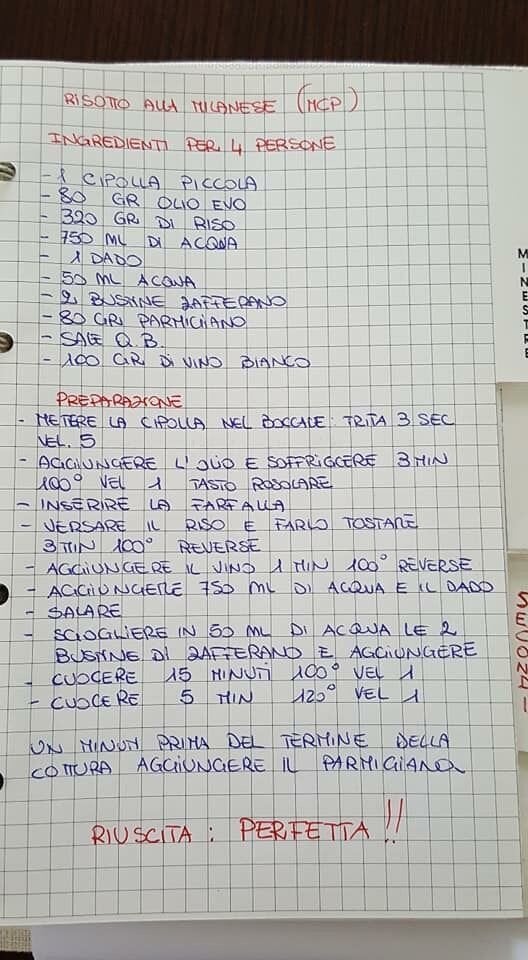 RISOTTO ALLA MILANESE (MCP)
INGREDIENTI PER 4 PERSONE
- 1 CIPOLLA PICCOLA
- 80 GR OLIO EVO
- 320 GR DI RISO
- 750 ML DI ACQUA
- 1 DADO
- 50 ML ACQUA
- 2 BUSTINE ZAFFERANO
- 80 GR PARMIGIANO
- SALE Q.B.
- 100 GR DI VINO BIANCO
PREPARAZIONE
- METERE LA CIPOLLA NEL BOCCALE: TRITA 3 SEC
VEL. 5
- AGGIUNGERE L'OLIO E SOFFRIGGERE 3 MIN
100° VEL 1 TASTO ROSOLARE
- INSERIRE LA FARFALLA
- VERSARE IL RISO E FARLO TOSTARE
3 MIN 100° REVERSE
- AGGIUNGERE IL VINO 1 MIN 100° REVERSE
- AGGIUNGERE 750 ML DI ACQUA E IL DADO
- SALARE
- SCIOGLIERE IN 50 ML DI ACQUA LE 2
BUSTINE DI ZAFFERANO E AGGIUNGERE
- CUOCERE 15 MINUTI 100° VEL 1
- CUOCERE 5 MIN 120° VEL 1
UN MINUTI PRIMA DEL TERMINE DELLA
COTTURA AGGIUNGERE IL PARMIGIANO
RIUSCITA: PERFETTA!!
MINESTRE
SECONDI